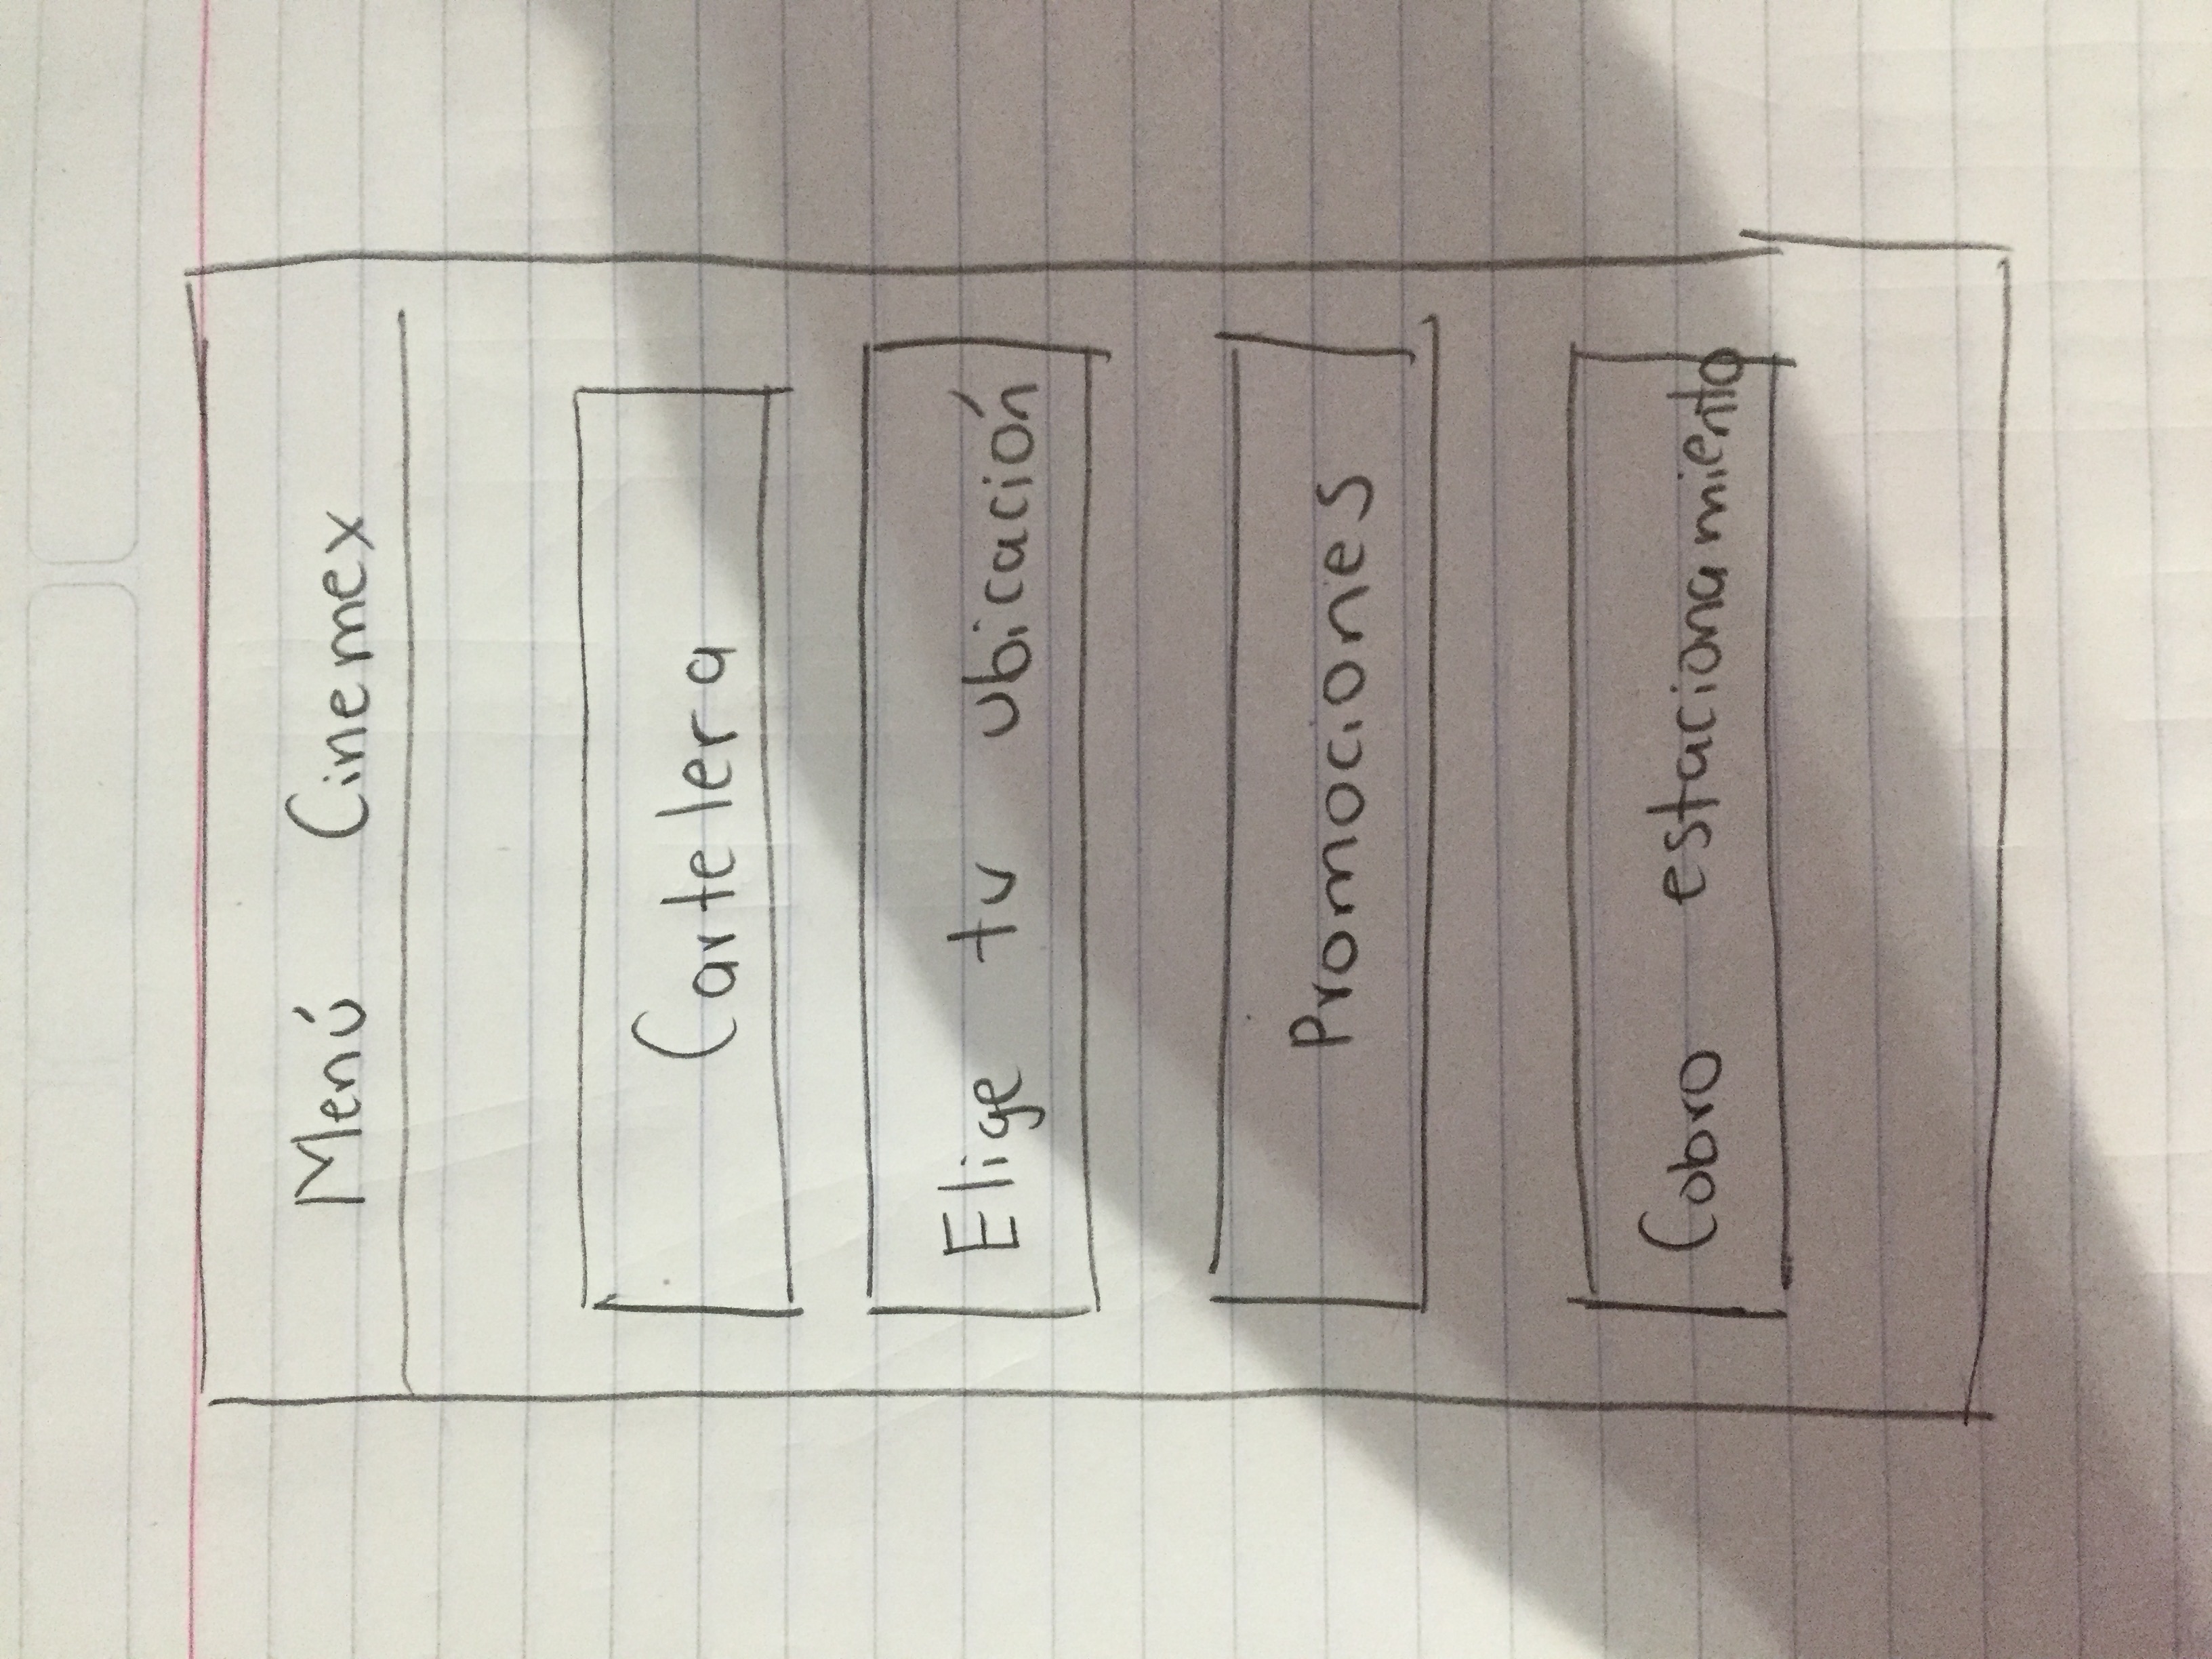 Menú Cinemex
Cartelera
Elige tu ubicación
Promociones
Cobro estacionamiento